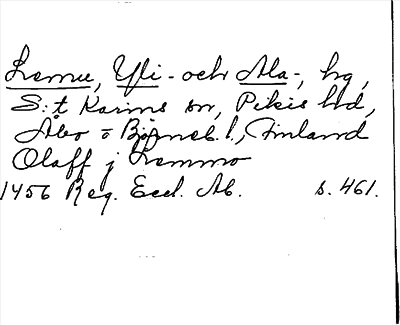 Lemu, Yli- och Ala-, hg,
S:t Karins sn, Pikis hd,
Åbo o Björneb. l., Finland
Olaff j Lemmo
1456 Reg. Eccl. Ab. s. 461.